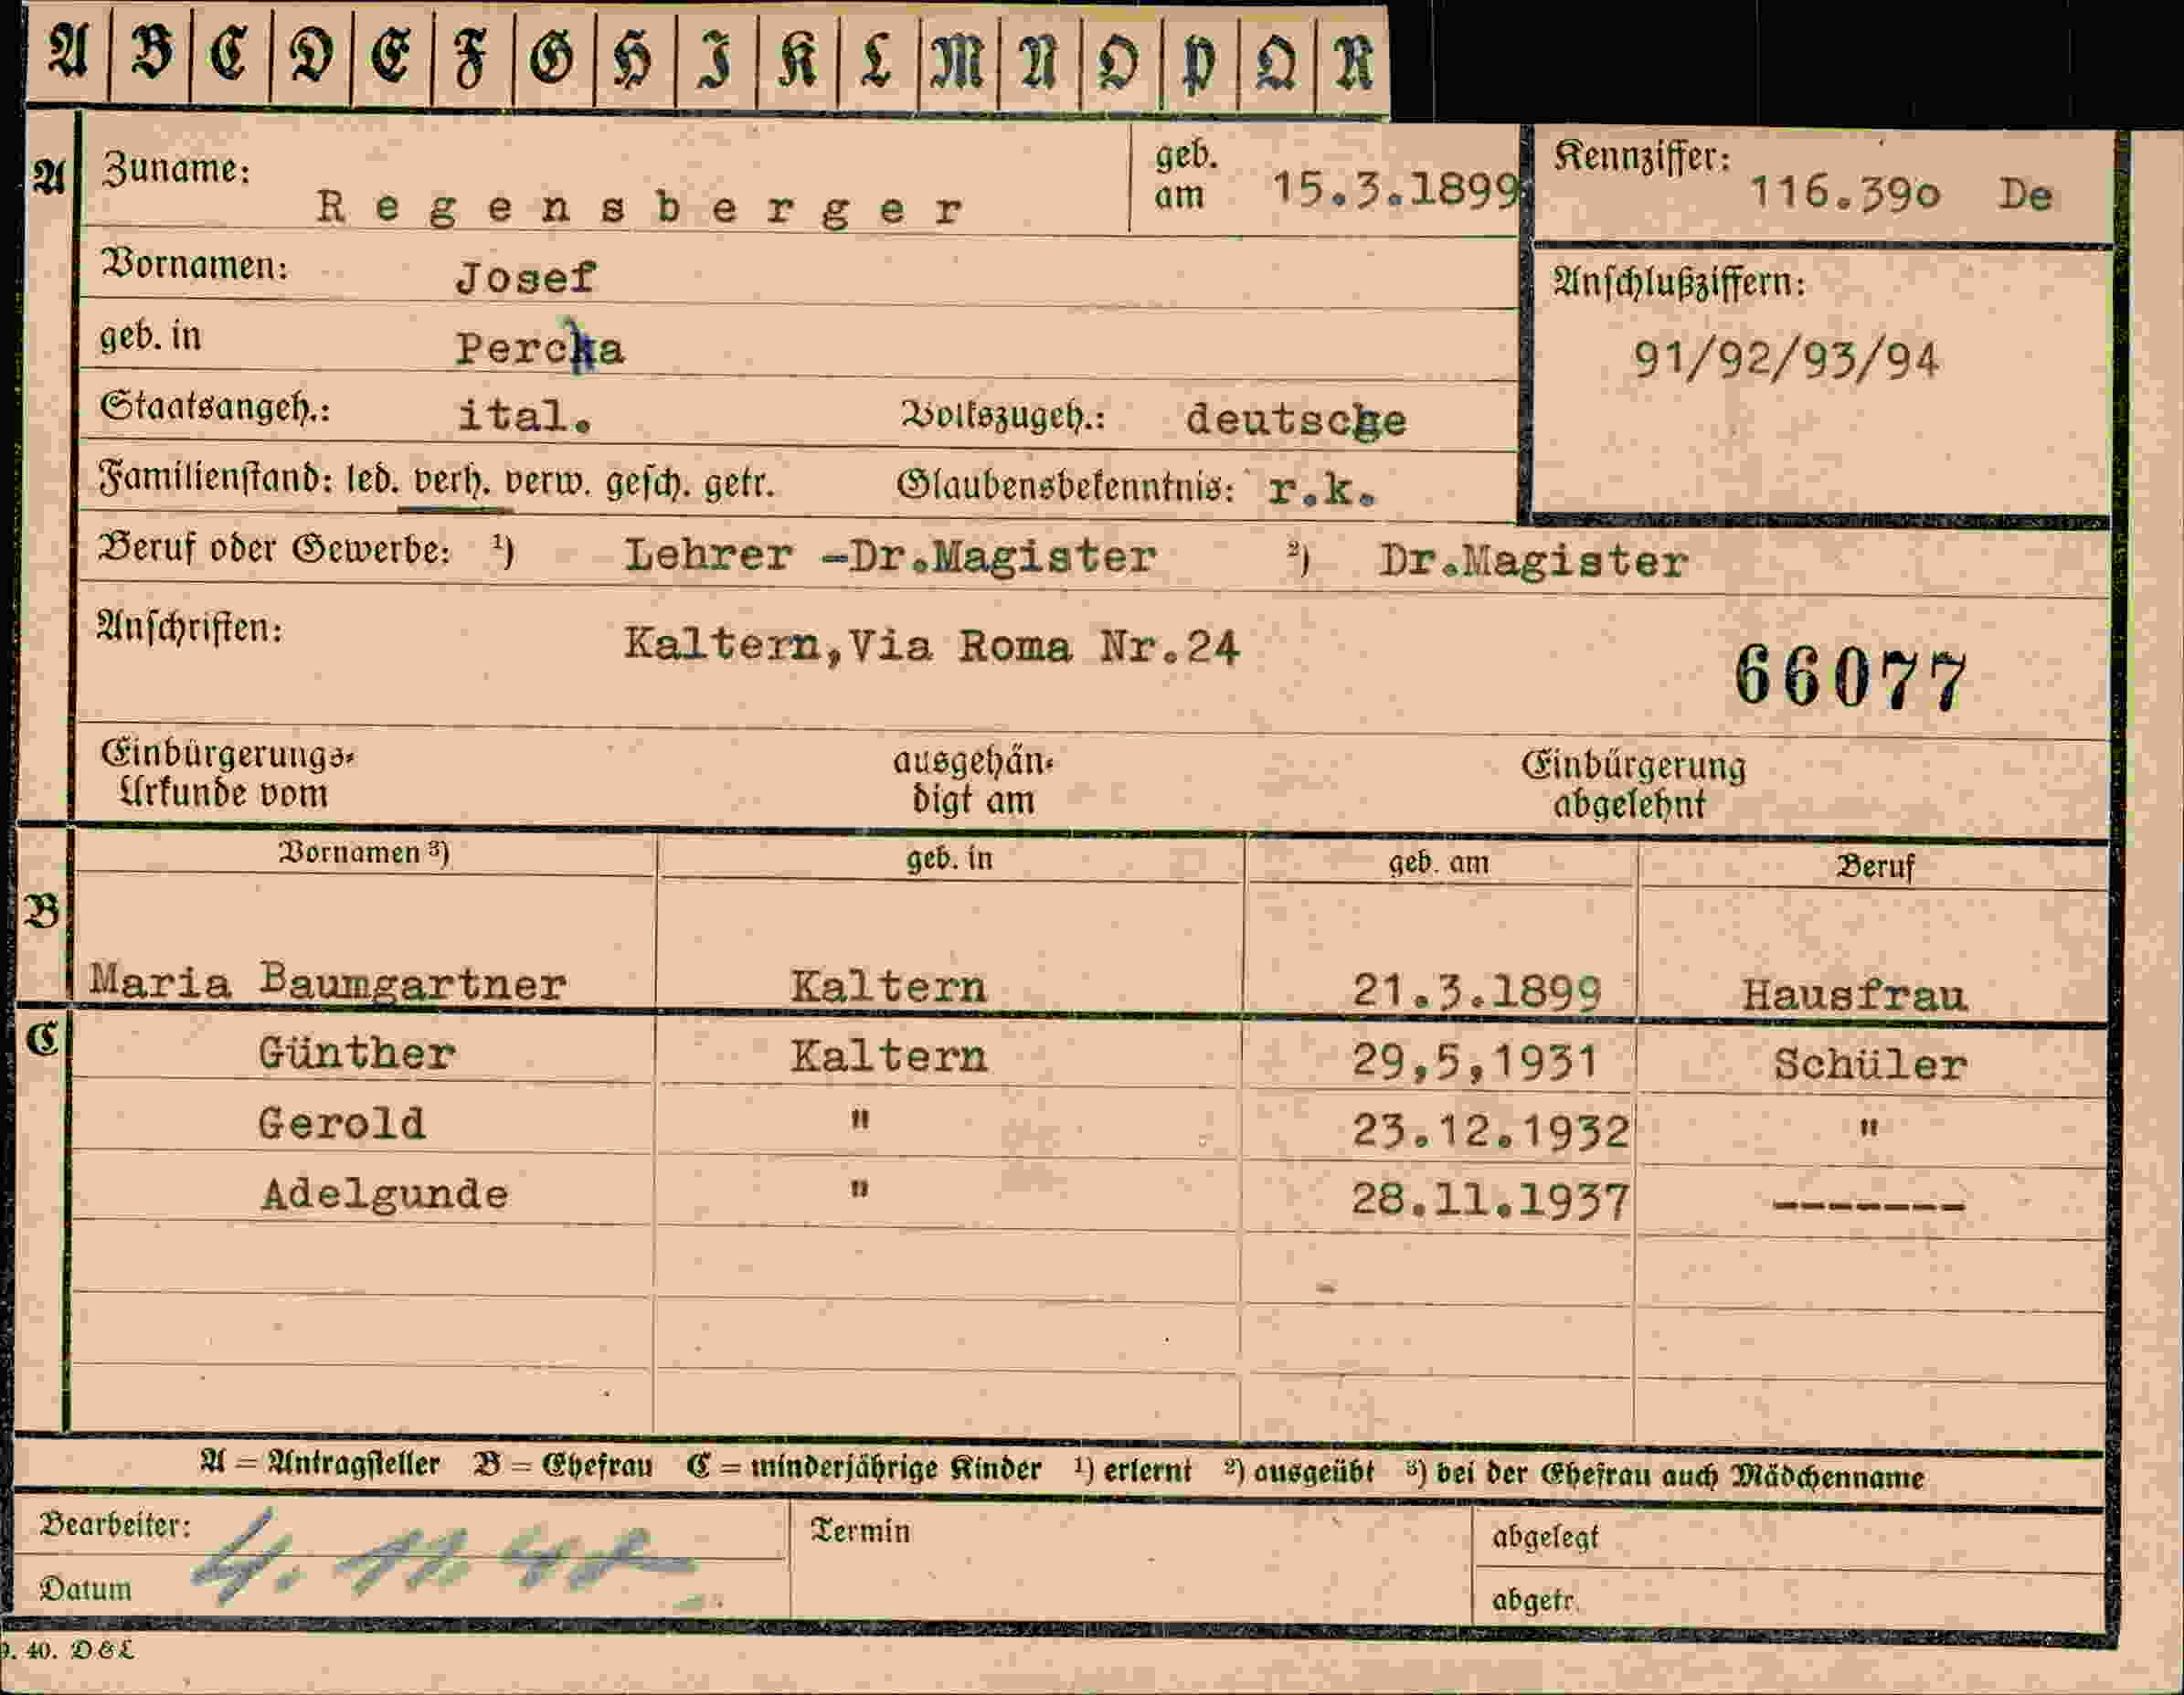 A B C D E F G H I K L M N O P Q R
A Zuname: Regensberger geb. am 15.3.1899 Kennziffer: 116.390 De
Vornamen: Josef
Anschlußziffern:
geb. in Percha
91/92/93/94
Staatsangeh.: ital. Volkszugeh.: deutsche
Familienstand: led. verh. verw. gesch. getr. Glaubensbekenntnis: r.k.
Beruf oder Gewerbe: ¹) Lehrer -Dr.Magister ²) Dr.Magister
Anschriften: Kaltern,Via Roma Nr.24
66077
Einbürgerungs-
Urkunde vom
ausgehän-
digt am
Einbürgerung
abgelehnt
Vornamen ³) geb. in geb. am Beruf
B
Maria Baumgartner Kaltern 21.3.1899 Hausfrau
C Günther Kaltern 29,5,1931 Schüler
Gerold " 23.12.1932 "
Adelgunde " 28.11.1937 -------
A = Antragsteller B = Ehefrau C = minderjährige Kinder ¹) erlernt ²) ausgeübt ³) bei der Ehefrau auch Mädchenname
Bearbeiter: Termin abgelegt
Datum abgetr.
40. D&L